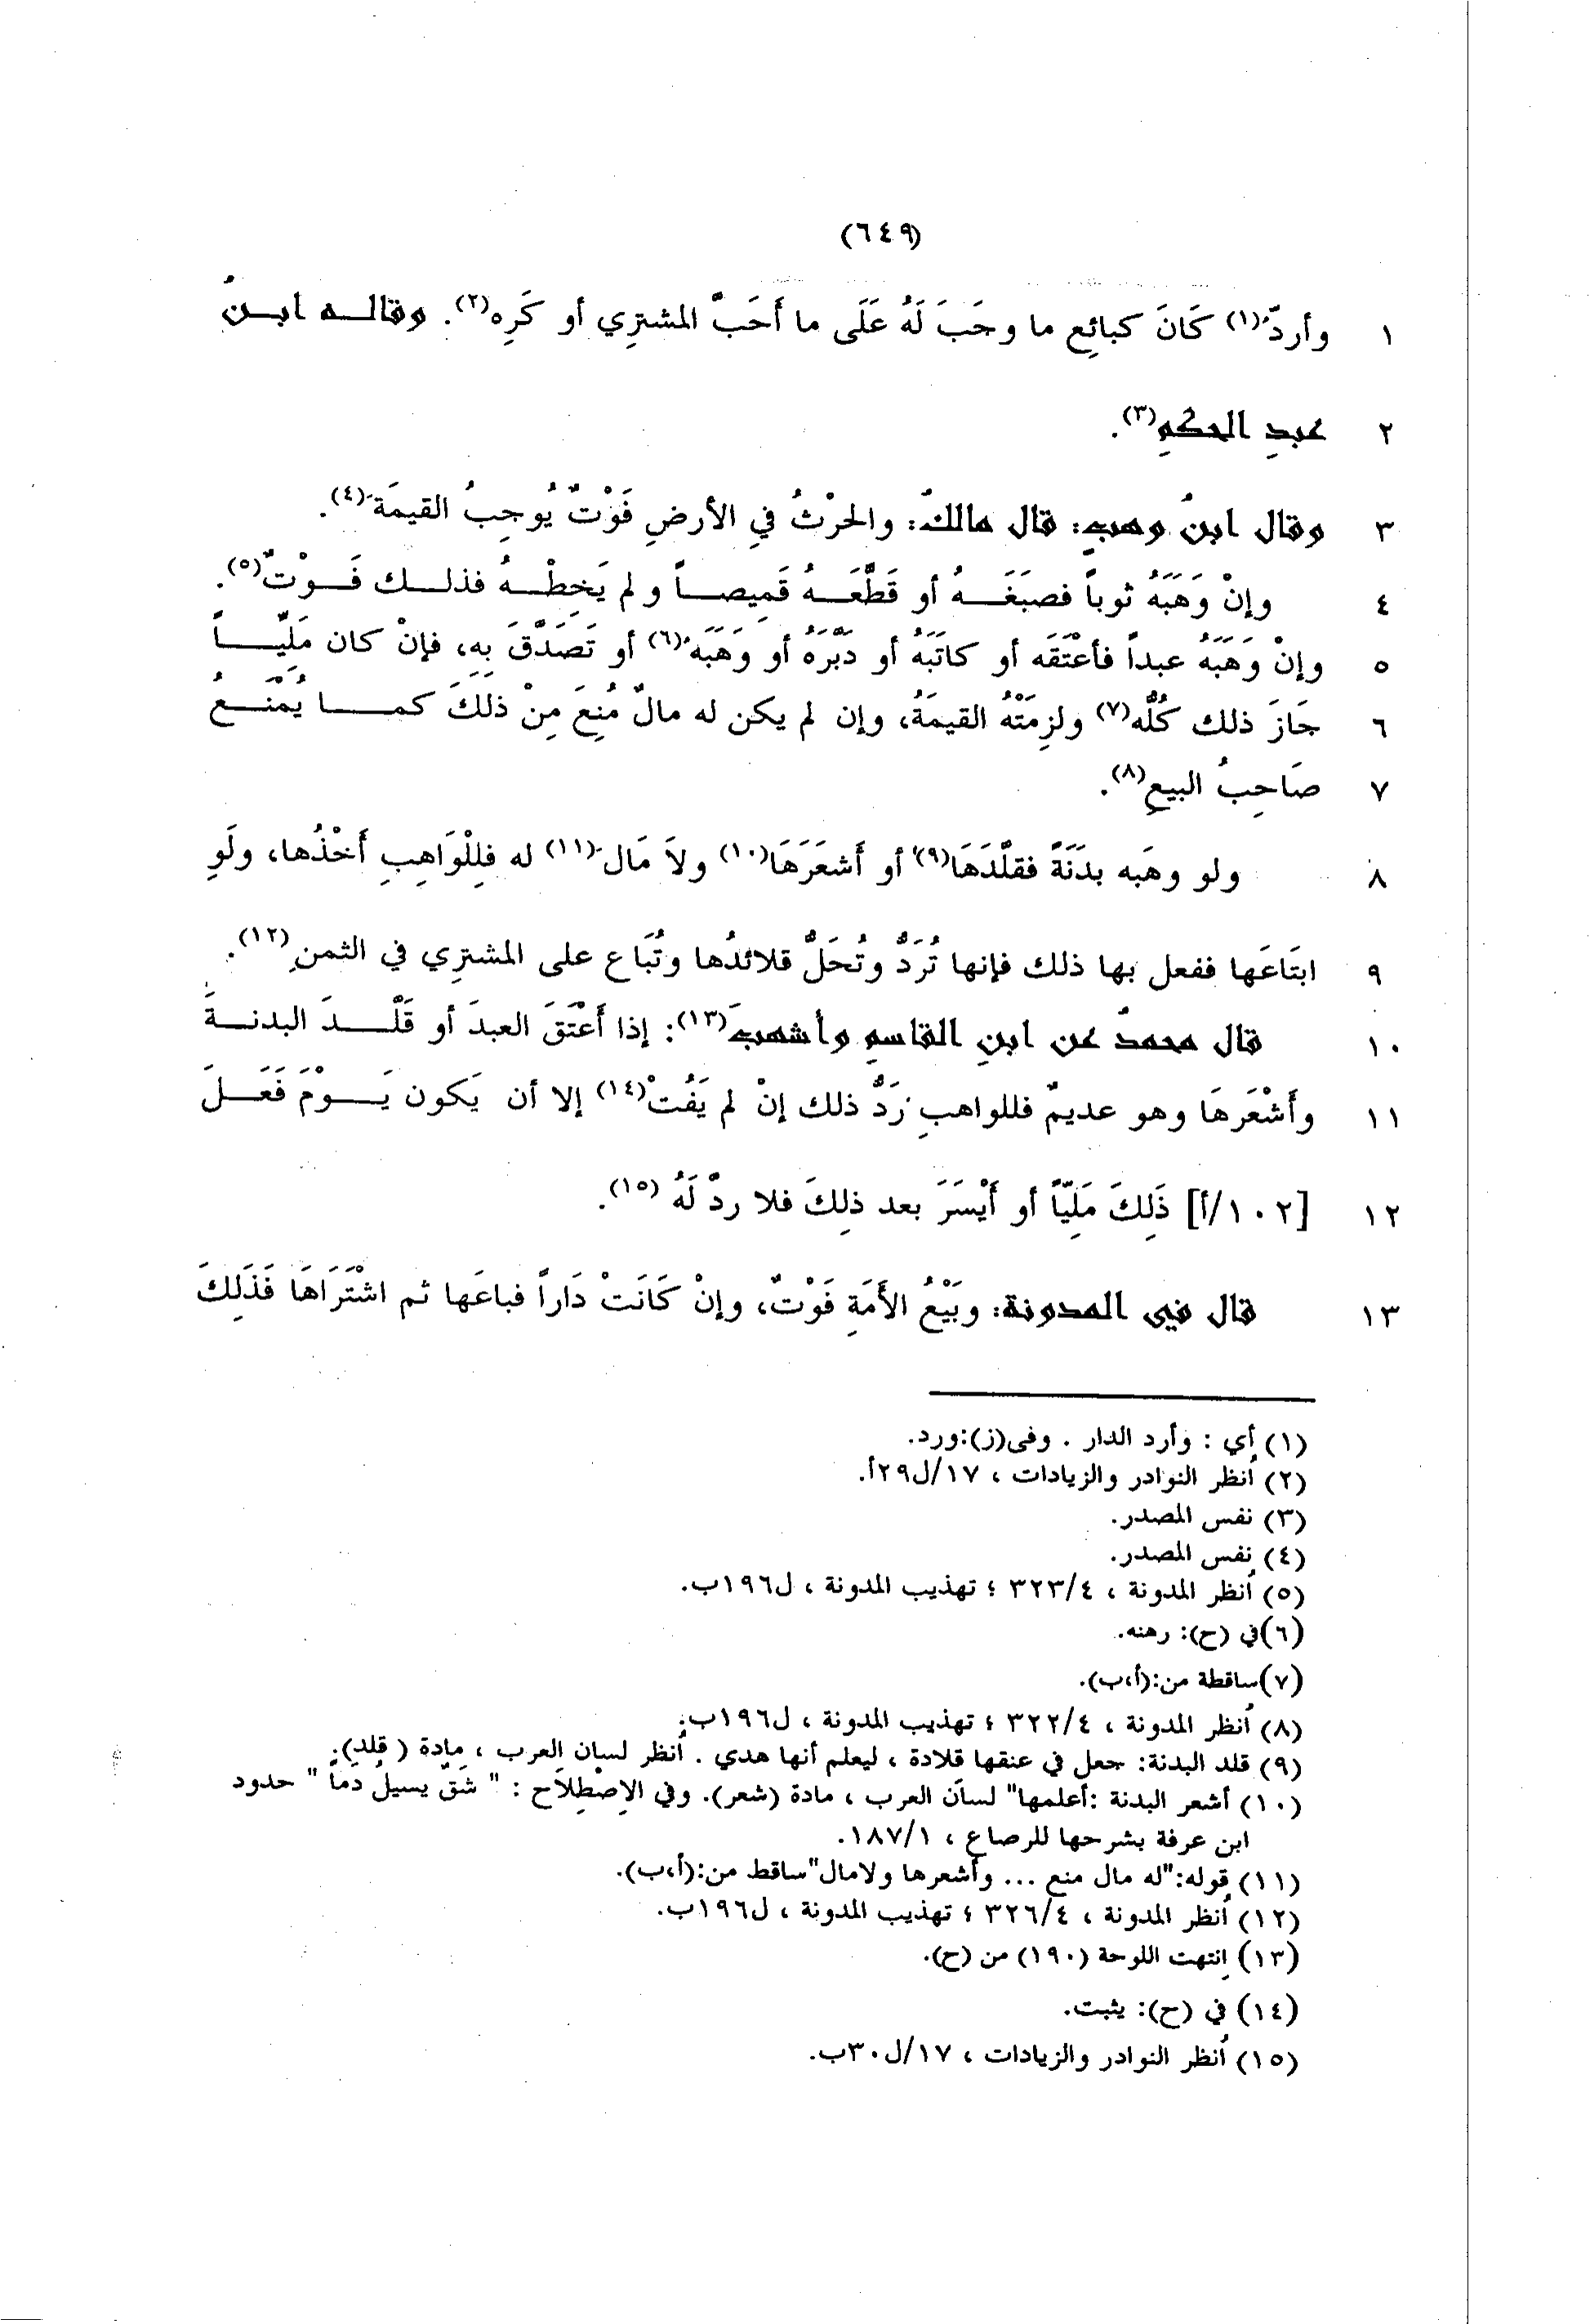 (٦٤٩)
١ وأردّ(١) كَانَ كبائِع ما وجَبَ لَهُ عَلَى ما أَحَبَّ المشترِي أو كَرِه(٢). وقاله ابنُ
٢ عبدِ الحكمِ(٣).
٣ وقال ابنُ وهبٍ: قال مالكٌ: والحَرْثُ فِي الأرضِ فَوْتٌ يُوجِبُ القيمَةَ(٤).
٤ وإنْ وَهَبَهُ ثوباً فصبَغَهُ أو قَطَّعَهُ قَمِيصاً ولم يَخِطْهُ فذلك فَوْتٌ(٥).
٥ وإنْ وَهَبَهُ عبداً فأعْتَقَه أو كاتَبَهُ أو دَبَّرَهُ أو وَهَبَهُ(٦) أو تَصَدَّقَ بِهِ، فإنْ كان مَلِيّاً
٦ جَازَ ذلك كُلُّه(٧) ولزِمَتْهُ القيمَةُ، وإن لم يكن له مالٌ مُنِعَ مِنْ ذلكَ كما يُمْنَعُ
٧ صَاحِبُ البيعِ(٨).
٨ ولو وهَبه بدَنَةً فقلَّدَهَا(٩) أو أَشعَرَهَا(١٠) ولاَ مَال(١١) له فلِلْوَاهِبِ أَخْذُها، ولَوِ
٩ ابتَاعَها ففعل بها ذلك فإنها تُرَدُّ وتُحَلُّ قلائدُها وتُبَاع على المشترِي في الثمنِ(١٢).
١٠ قال محمدٌ عن ابنِ القاسمِ وأشهبَ(١٣): إذا أَعْتَقَ العبدَ أو قَلَّدَ البدنةَ
١١ وأَشْعَرهَا وهو عديمٌ فللواهبِ رَدُّ ذلك إنْ لم يَفُتْ(١٤) إلا أن يَكون يَوْمَ فَعَلَ
١٢ [١٠٢/أ] ذَلِكَ مَلِيّاً أو أَيْسَرَ بعد ذلِكَ فلا ردَّ لَهُ (١٥).
١٣ قال في المدونة: وبَيْعُ الأَمَةِ فَوْتٌ، وإنْ كَانَتْ دَاراً فباعَها ثم اشْتَرَاهَا فَذَلِكَ
(١) أي : وأرد الدار . وفى(ز):ورد.
(٢) أنظر النوادر والزيادات ، ١٧/ل٢٩أ.
(٣) نفس المصدر.
(٤) نفس المصدر.
(٥) أنظر المدونة ، ٣٢٣/٤ ؛ تهذيب المدونة ، ل١٩٦ب.
(٦)في (ح): رهنه.
(٧)ساقطة من:(أ،ب).
(٨) أنظر المدونة ، ٣٢٢/٤ ؛ تهذيب المدونة ، ل١٩٦ب.
(٩) قلد البدنة: جعل في عنقها قلادة ، ليعلم أنها هدي . أنظر لسان العرب ، مادة ( قلد).
(١٠) أشعر البدنة :أعلمها" لسان العرب ، مادة (شعر). وفي الإصْطِلاَح : " شَقّ يسيلُ دَماً " حدود
ابن عرفة بشرحها للرصاع ، ١٨٧/١.
(١١) قوله:"له مال منع ... وأشعرها ولامال"ساقط من:(أ،ب).
(١٢) أنظر المدونة ، ٣٢٦/٤ ؛ تهذيب المدونة ، ل١٩٦ب.
(١٣) إنتهت اللوحة (١٩٠) من (ح).
(١٤) في (ح): يثبت.
(١٥) أنظر النوادر والزيادات ، ١٧/ل٣٠ب.